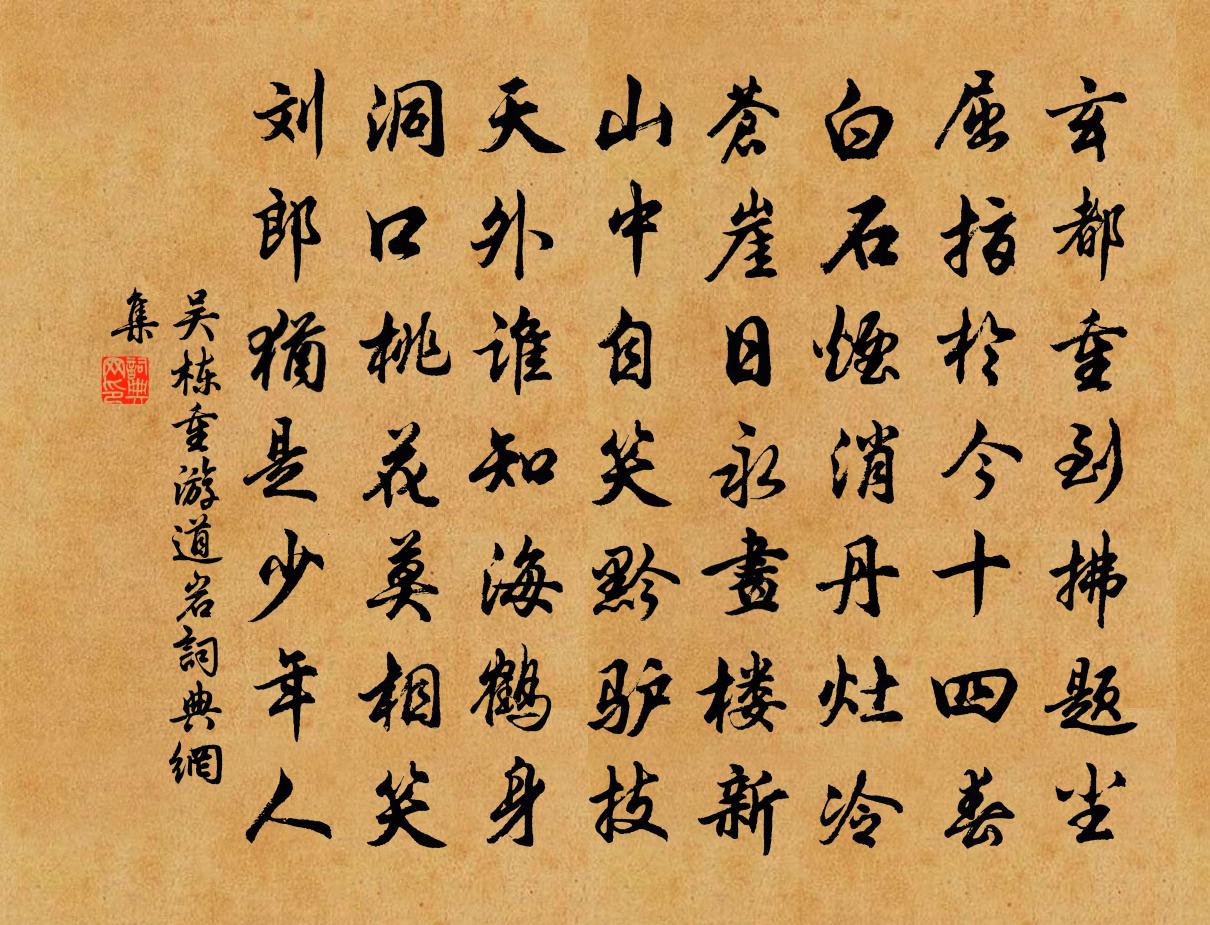 玄都重到拂题尘
屈指於今十四春
白石煙消丹灶冷
苍崖日永畫楼新
山中自笑黔驴技
天外谁知海鹤身
洞口桃花莫相笑
刘郎犹是少年人
吴栋重游道岩詞典網
集
詞典
网印